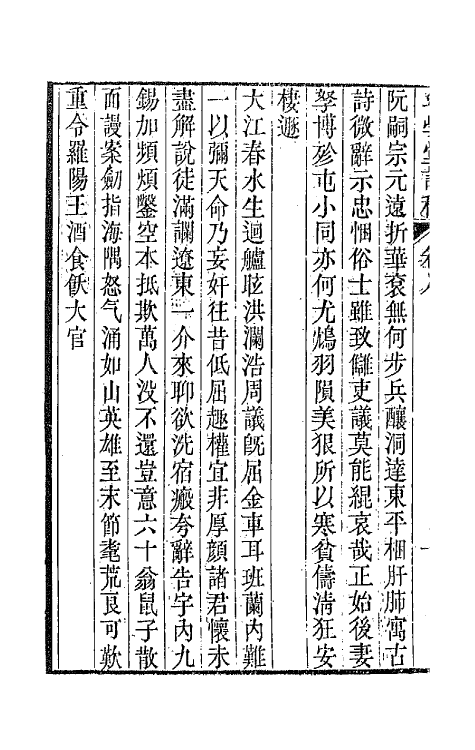 阮嗣宗元遠折華袞無何步兵釀洞達東平梱肝肺寓古
詩微辭示忠悃俗士雖致讎吏議莫能緄哀哉正始後妻
孥博殄屯小同亦何尤鴆羽隕美狠所以寒貧儔清狂安
棲遯
大江春水生迴艫眩洪瀾浩周議旣屈金車耳班蘭內難
一以彌天命乃妄奸往昔低屈趣權宜非厚顏諸君懷未
盡解說徒滿讕遼東一介來聊欲洗宿瘢夸辭告宇內九
錫加頻煩鑿空本抵欺萬人没不還豈意六十翁鼠子敢
而謾案劒指海隅怒气涌如山英雄至末節耄荒良可歎
重令羅陽王酒食飮大官